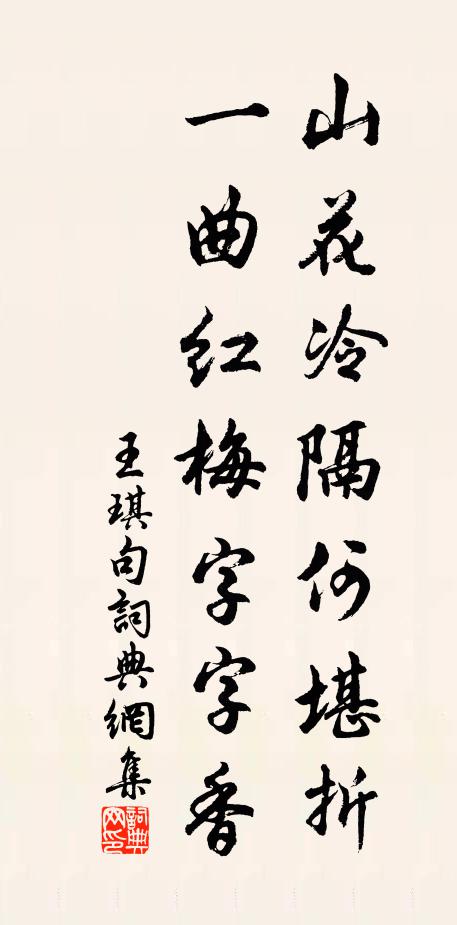 山花冷隔何堪折
一曲红梅字字香
王琪句詞典網集
詞典
网印